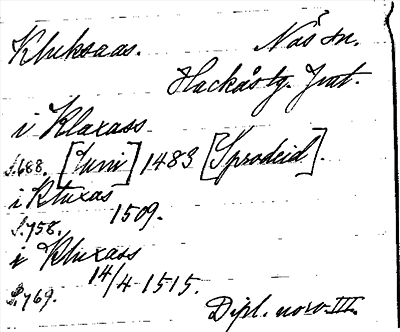 Kluksaas. Näs sn.
Hackås tg. Jmt.
i Klaxass
S. 688. [Juni] 1483 [Sprodeid].
i Kluxas
S. 758. 1509.
i Kluxass
S. 769. 14/4 1515.
Dipl. norv. III.